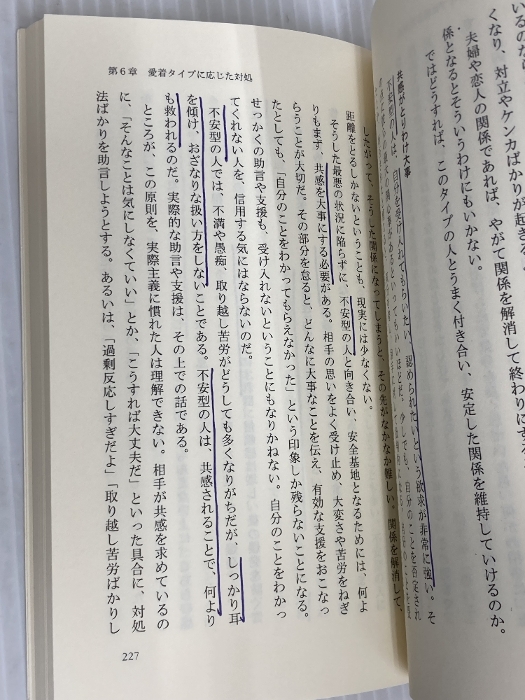 いるのなら
くなり、対立やケンカばかりが起きる
夫婦や恋人の関係であれば、やがて関係を解消して終わりにする
係となるとそういうわけにもいかない。
ではどうすれば、このタイプの人とうまく付き合い、安定した関係を維持していけるのか。
共感がとりわけ大事
不安型の人は、自分を受け入れてもらいたい、認められたいという欲求が非常に強い。そ
したがって、そうした関係になってしまうと、その先がなかなか難しい。関係を解消して、
距離をとるしかないということも、現実には少なくない。
そうした最悪の状況に陥らずに、不安型の人と向き合い、安全基地となるためには、何よ
りもまず、共感を大事にする必要がある。相手の思いをよく受け止め、大変さや苦労をねぎ
らうことが大切だ。その部分を怠ると、どんなに大事なことを伝え、有効な支援をおこなっ
たとしても、「自分のことをわかってもらえなかった」という印象しか残らないことになる。
せっかくの助言や支援も、受け入れないということにもなりかねない。自分のことをわかっ
てくれない人を、信用する気にはならないのだ。
不安型の人では、不満や愚痴、取り越し苦労がどうしても多くなりがちだが、しっかり耳
を傾け、おざなりな扱い方をしないことである。不安型の人は、共感されることで、何より
も救われるのだ。実際的な助言や支援は、その上での話である。
ところが、この原則を、実際主義に慣れた人は理解できない。相手が共感を求めているの
に、「そんなことは気にしなくていい」とか、「こうすれば大丈夫だ」といった具合に、対処
法ばかりを助言しようとする。あるいは、「過剰反応しすぎだよ」「取り越し苦労ばかりし
第6章 愛着タイプに応じた対処
227